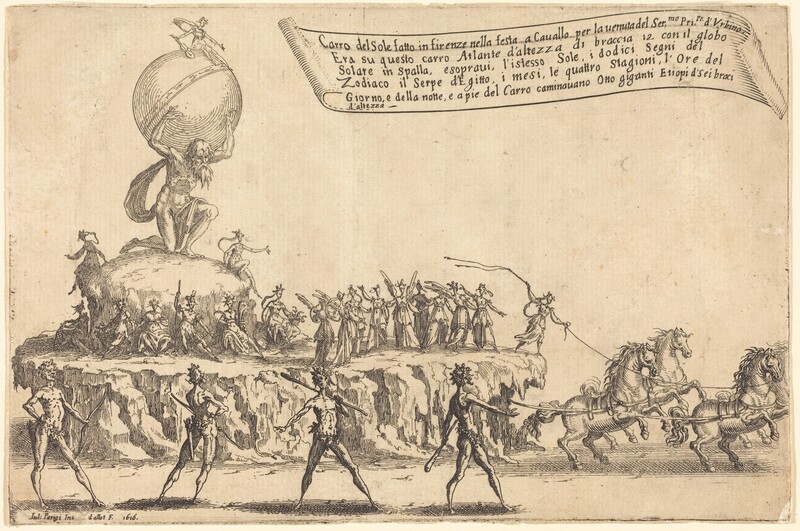 Carro del Sole fatto in firenze nella festa a Cauallo per la uenuta del Ser.mo Pri.pe d'Vrbino.
Era su questo carro Atlante d'altezza di braccia 12 con il globo
Solare in Spalla, esoprauj, l'istesso Sole, i dodici Segni del
Zodiaco il Serpe d'Egitto, i mesi, le quattro Stagioni, l'Ore del
Giorno, e della notte, e a pie del Carro caminauano Otto giganti Etiopi d'sei braci
d'altezza
Iuli Parigi Inv. Callot F. 1616.